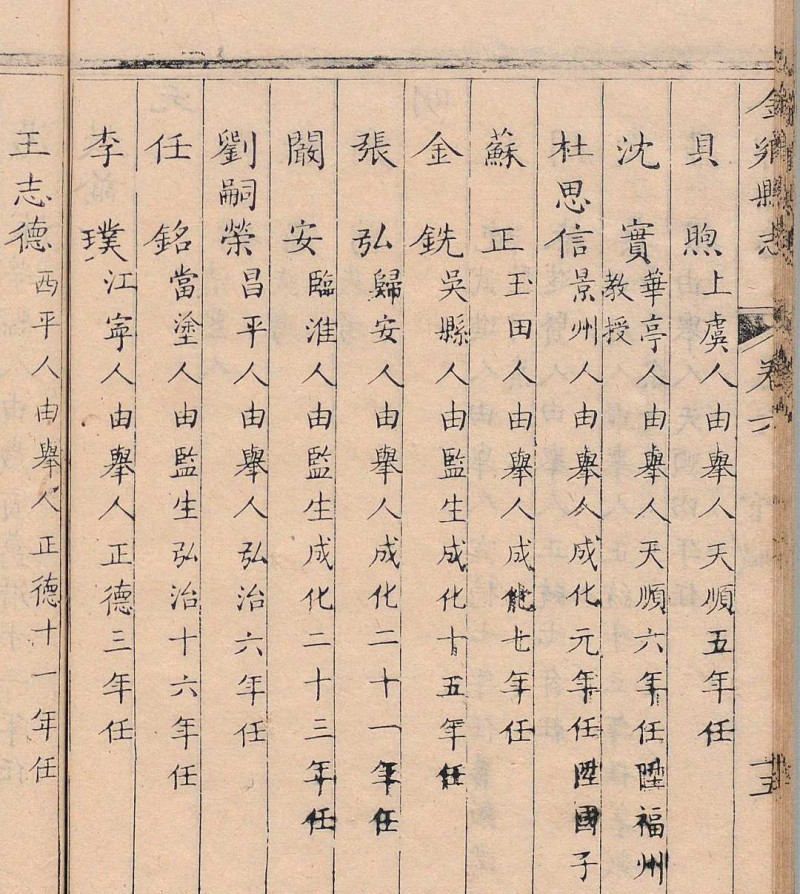 金鄉縣志
卷六
十五
貝煦上虞人由舉人天順五年任
沈實華亭人由舉人天順六年任陞福州
教授
杜思信景州人由舉人成化元年任陞國子
蘇正玉田人由舉人成化七年任
金銑吳縣人由監生成化十五年任
張弘歸安人由舉人成化二十一年任
闞安臨淮人由監生成化二十三年任
劉嗣榮昌平人由舉人弘治六年任
任銘當塗人由監生弘治十六年任
李璞江寧人由舉人正德三年任
王志德西平人由舉人正德十一年任